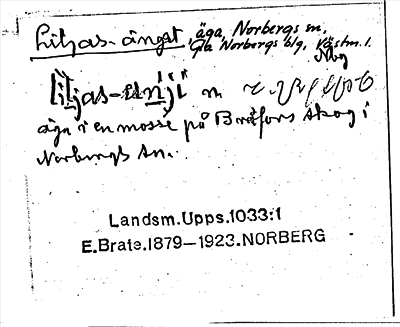 Liljas-änget, äga, Norbergs sn,
Gla Norbergs blg, Västm.l.
Nbg
m
äga i en mosse på Bråfors skog i
Norbergs sn.
Landsm.Upps.1033:1
E.Brate.1879–1923.NORBERG